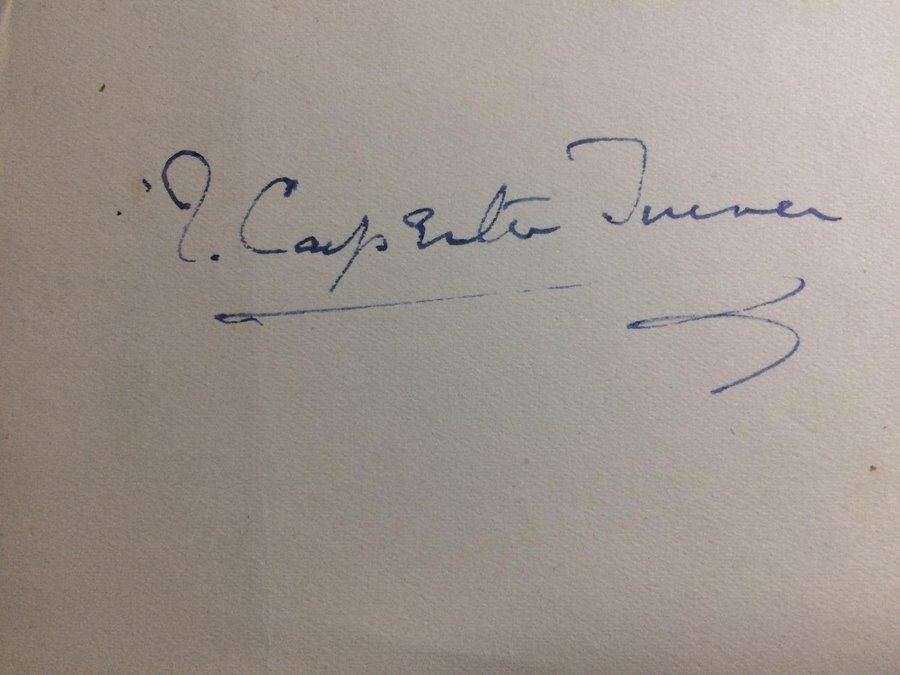 . Carpenter Turner